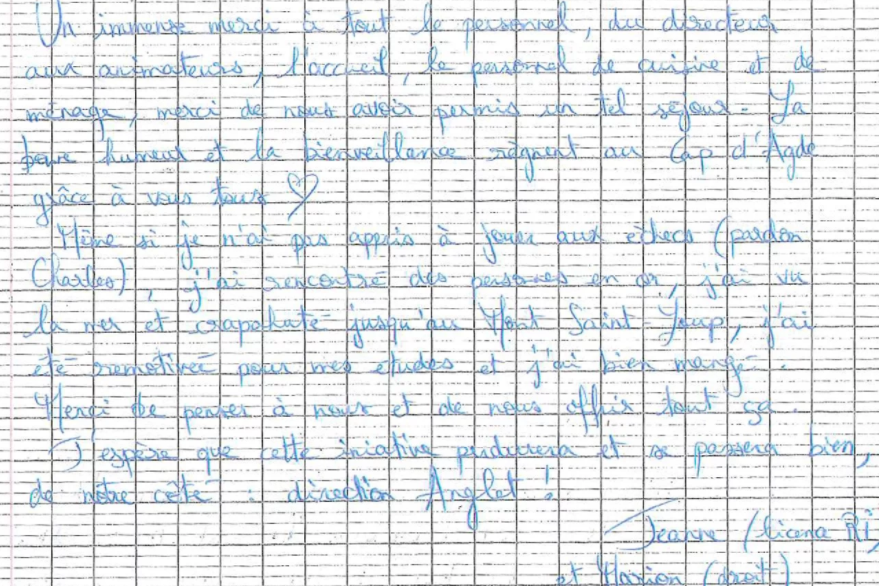 Un immense merci à tout le personnel, du directeur
aux animateurs, l'accueil, le personnel de cuisine et de
ménage, merci de nous avoir permis un tel séjour. La
bonne humeur et la bienveillance règnent au Cap d'Agde
grâce à vous tous ♡
Même si je n'ai pas appris à jouer aux échecs (pardon
Charles), j'ai rencontré des personnes en or, j'ai vu
la mer et crapahuté jusqu'au Mont Saint-Loup, j'ai
été remotivée pour mes études et j'ai bien mangé.
Merci de penser à nous et de nous offrir tout ça.
J'espère que cette iniative perdurera et se passera bien,
de notre côté : direction Anglet !
Jeanne (licence RI)
et Marion (droit)